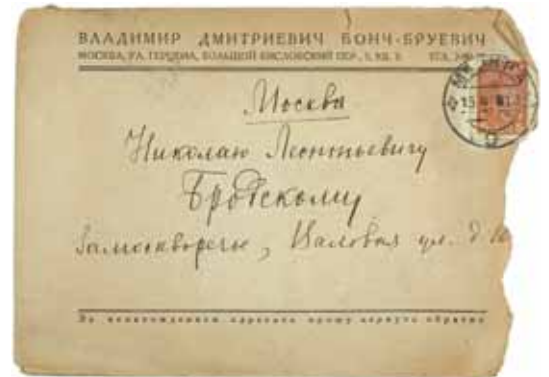 ВЛАДИМИР ДМИТРИЕВИЧ БОНЧ-БРУЕВИЧ
МОСКВА, УЛ. ГЕРЦЕНА, БОЛЬШОЙ КИСЛОВСКИЙ ПЕР., 5, КВ. 8. ТЕЛ.
Москва
Николаю Леонтьевичу
Бродскому
Замоскворечье, Валовая ул. д.
За ненахождением адресата прошу вернуть обратно